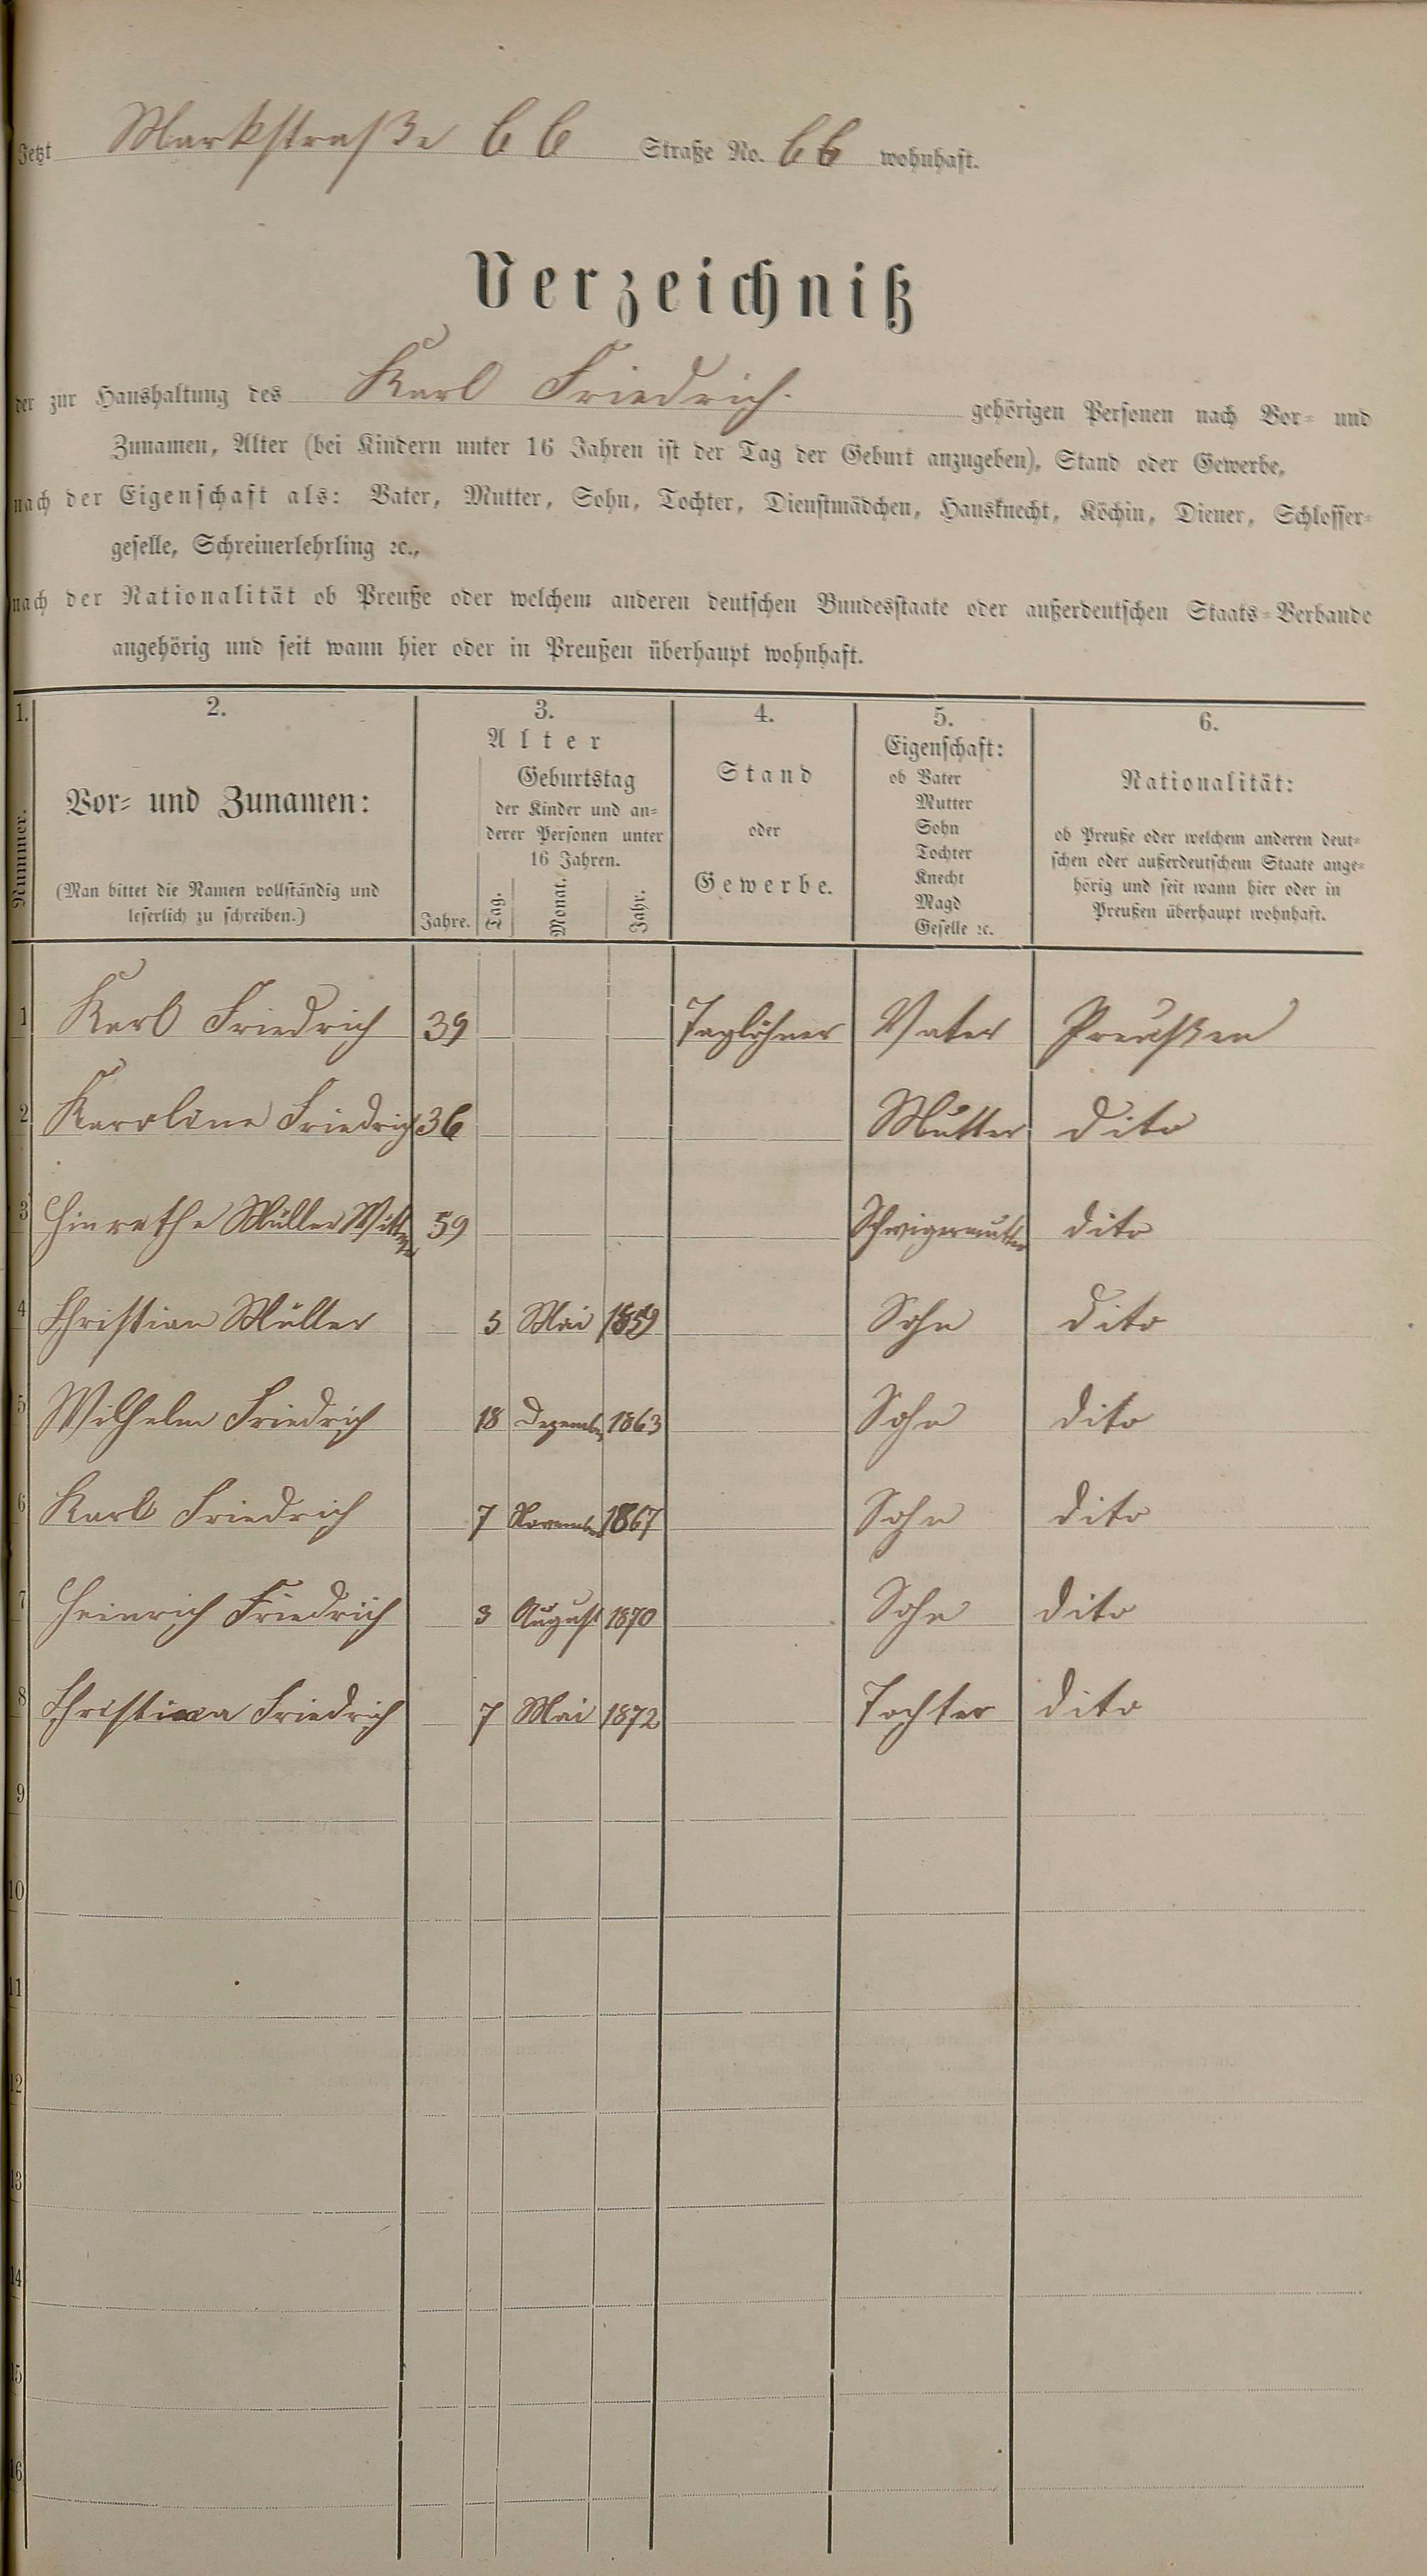 Jetzt Markstraße 66 Straße No. 66 wohnhaft.
Verzeichniß
der zur Haushaltung des Karl Friedrich. gehörigen Personen nach Vor- und
Zunamen, Alter (bei Kindern unter 16 Jahren ist der Tag der Geburt anzugeben), Stand oder Gewerbe,
nach der Eigenschaft als: Vater, Mutter, Sohn, Tochter, Dienstmädchen, Hausknecht, Köchin, Diener, Schlosser-
geselle, Schreinerlehrling ꝛc.,
nach der Nationalität ob Preuße oder welchem anderen deutschen Bundesstaate oder außerdeutschen Staats-Verbande
angehörig und seit wann hier oder in Preußen überhaupt wohnhaft.
1.
Nummer.
2.
Vor- und Zunamen:
(Man bittet die Namen vollständig und
leserlich zu schreiben.)
3.
Alter
Jahre.
Geburtstag
der Kinder und an-
derer Personen unter
16 Jahren.
Tag. Monat. Jahr.
4.
Stand
oder
Gewerbe.
5.
Eigenschaft:
ob Vater
Mutter
Sohn
Tochter
Knecht
Magd
Geselle ꝛc.
6.
Nationalität:
ob Preuße oder welchem anderen deut-
schen oder außerdeutschem Staate ange-
hörig und seit wann hier oder in
Preußen überhaupt wohnhaft.
1 Karl Friedrich 39 Taglöhner Vater Preußen
2 Karoline Friedrich 36 Mutter dito
3 Müller 59 Schwigermutter dito
4 Christian Müller 5 Mai 1859 Sohn dito
5 Wilhelm Friedrich 18 Dezember 1863 Sohn dito
6 Karl Friedrich 7 November 1867 Sohn dito
7 Heinrich Friedrich 3 August 1870 Sohn dito
8 Christina Friedrich 7 Mai 1872 Tochter dito
9
10
11
12
13
14
15
16